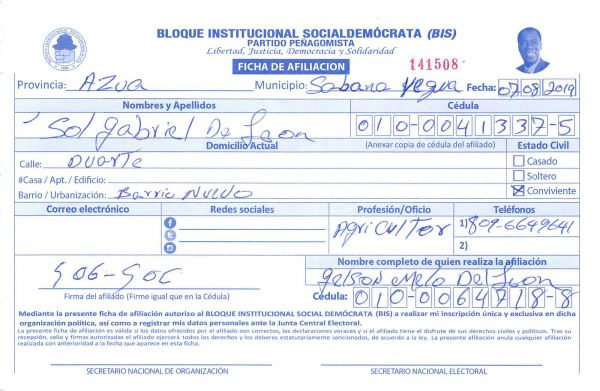 BLOQUE INSTITUCIONAL SOCIALDEMÓCRATA (BIS)
PARTIDO PEÑAGOMISTA
Libertad, Justicia, Democracia y Solidaridad
FICHA DE AFILIACION 141508
Provincia: AZUA Municipio: Sabana Yegua Fecha: 07 08 2019
Nombres y Apellidos Cédula
Sol Gabriel De Leon 010-0041337-5
Domicilio Actual (Anexar copia de cédula del afiliado) Estado Civil
Calle: Duarte Casado
#Casa / Apt. / Edificio: Soltero
Barrio / Urbanización: Barrio Nuevo Conviviente
Correo electrónico Redes sociales Profesión/Oficio Teléfonos
Agricultor 1) 809-6649641
2)
Nombre completo de quien realiza la afiliación
Melo De Leon
Firma del afiliado (Firme igual que en la Cédula) Cédula: 010-0064718-8
Mediante la presente ficha de afiliación autorizo al BLOQUE INSTITUCIONAL SOCIAL DEMÓCRATA (BIS) a realizar mi inscripción única y exclusiva en dicha
organización política, así como a registrar mis datos personales ante la Junta Central Electoral.
La presente ficha de afiliación es válida si los datos completados por el afiliado son correctos, las declaraciones veraces y si el afiliado tiene el disfrute de sus derechos civiles y políticos. Tras su
recepción, sello y firmas autorizadas el afiliado ejercerá todos los derechos y los deberes estatutariamente sancionados, de acuerdo a la ley. La presente afiliación anula cualquier afiliación
realizada con anterioridad a la fecha que aparece en esta ficha.
SECRETARIO NACIONAL DE ORGANIZACIÓN SECRETARIO NACIONAL ELECTORAL